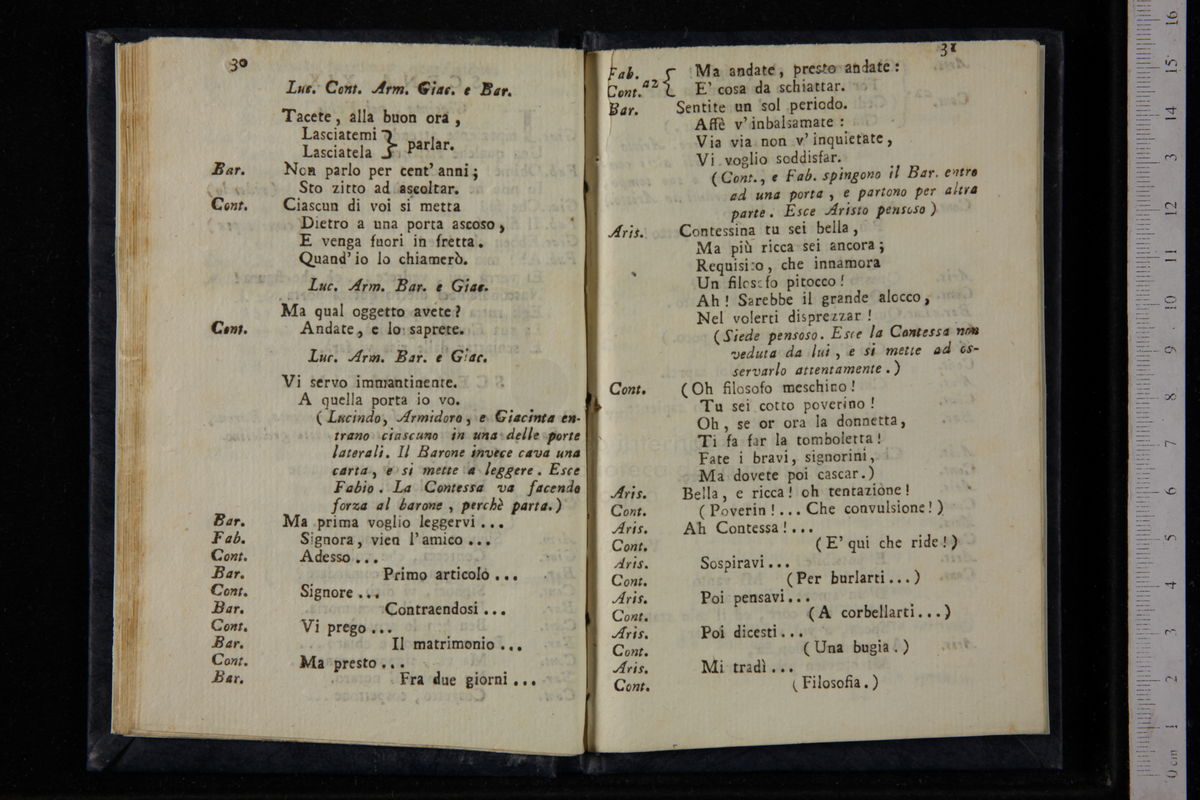 30
Luc. Cont. Arm. Giac. e Bar.
Tacete, alla buon ora,
Lasciatemi } parlar.
Lasciatela
Bar. Non parlo per cent' anni;
Sto zitto ad ascoltar.
Cont. Ciascun di voi si metta
Dietro a una porta ascoso,
E venga fuori in fretta.
Quand' io lo chiamerò.
Luc. Arm. Bar. e Giac.
Ma qual oggetto avete?
Cont. Andate, e lo saprete.
Luc. Arm. Bar. e Giac.
Vi servo immantinente.
A quella porta io vo.
(Lucindo, Armidoro, e Giacinta en-
trano ciascuno in una delle porte
laterali. Il Barone invece cava una
carta, e si mette a leggere. Esce
Fabio. La Contessa va facendo
forza al barone, perchè parta.)
Bar. Ma prima voglio leggervi ...
Fab. Signora, vien l'amico ...
Cont. Adesso ...
Bar. Primo articolo ...
Cont. Signore ...
Bar. Contraendosi ...
Cont. Vi prego ...
Bar. Il matrimonio ...
Cont. Ma presto ...
Bar. Fra due giorni ...
31
Fab. a2 { Ma andate, presto andate:
Cont. E' cosa da schiattar.
Bar. Sentite un sol periodo.
Affè v'inbalsamate:
Via via non v'inquietate,
Vi voglio soddisfar.
(Cont., e Fab. spingono il Bar. entro
ad una porta, e partono per altra
parte. Esce Aristo pensoso)
Aris. Contessina tu sei bella,
Ma più ricca sei ancora;
Requisito, che innamora
Un filosofo pitocco!
Ah! Sarebbe il grande alocco,
Nel volerti disprezzar!
(Siede pensoso. Esce la Contessa non
veduta da lui, e si mette ad os-
servarlo attentamente.)
Cont. (Oh filosofo meschino!
Tu sei cotto poverino!
Oh, se or ora la donnetta,
Ti fa far la tomboletta!
Fate i bravi, signorini,
Ma dovete poi cascar.)
Aris. Bella, e ricca! oh tentazione!
Cont. (Poverin!... Che convulsione!)
Aris. Ah Contessa!...
Cont. (E' qui che ride!)
Aris. Sospiravi...
Cont. (Per burlarti...)
Aris. Poi pensavi...
Cont. (A corbellarti...)
Aris. Poi dicesti...
Cont. (Una bugia.)
Aris. Mi tradì...
Cont. (Filosofia.)
0 cm 1 2 3 4 5 6 7 8 9 10 11 12 13 14 15 16